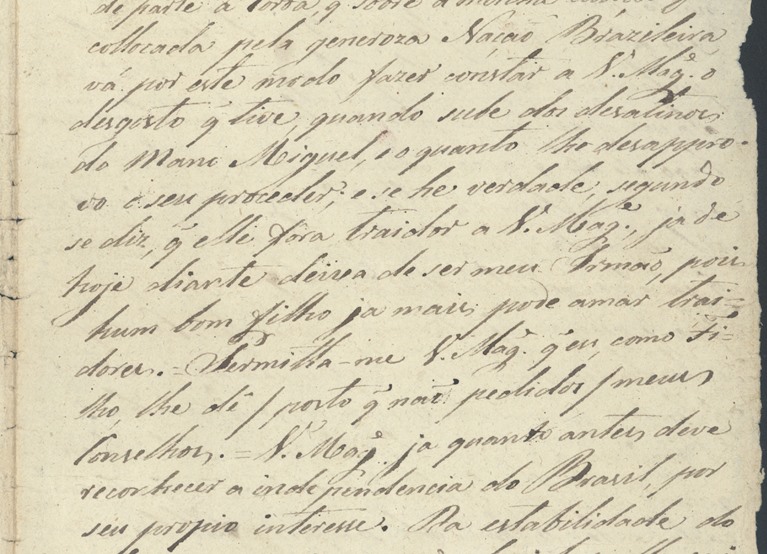 de parte a Coroa, q̃ sobre a minha
collocada pela generoza Nação Brazileira,
vá por este modo fazer constar a V. Magᵉ. o
desgosto q̃ tive, quando sube dos desatinos
do Mano Miguel, e o quanto lhe desappro-
vo o seu proceder; e se he verdade, segundo
se diz, q̃ elle fôra traidor a V. Magᵉ., ja de
hoje diante deixa de ser meu Irmão, pois
hum bom filho ja mais pode amar trai=
dores. = Permitta-me V. Magᵉ. q̃ eu, como Fi=
lho, lhe dê / posto q̃ não pedidos / meus
Conselhos. = V. Magᵉ. ja quanto antes deve
reconhecer a independencia do Brasil, por
seu propio interesse. Da estabilidade do